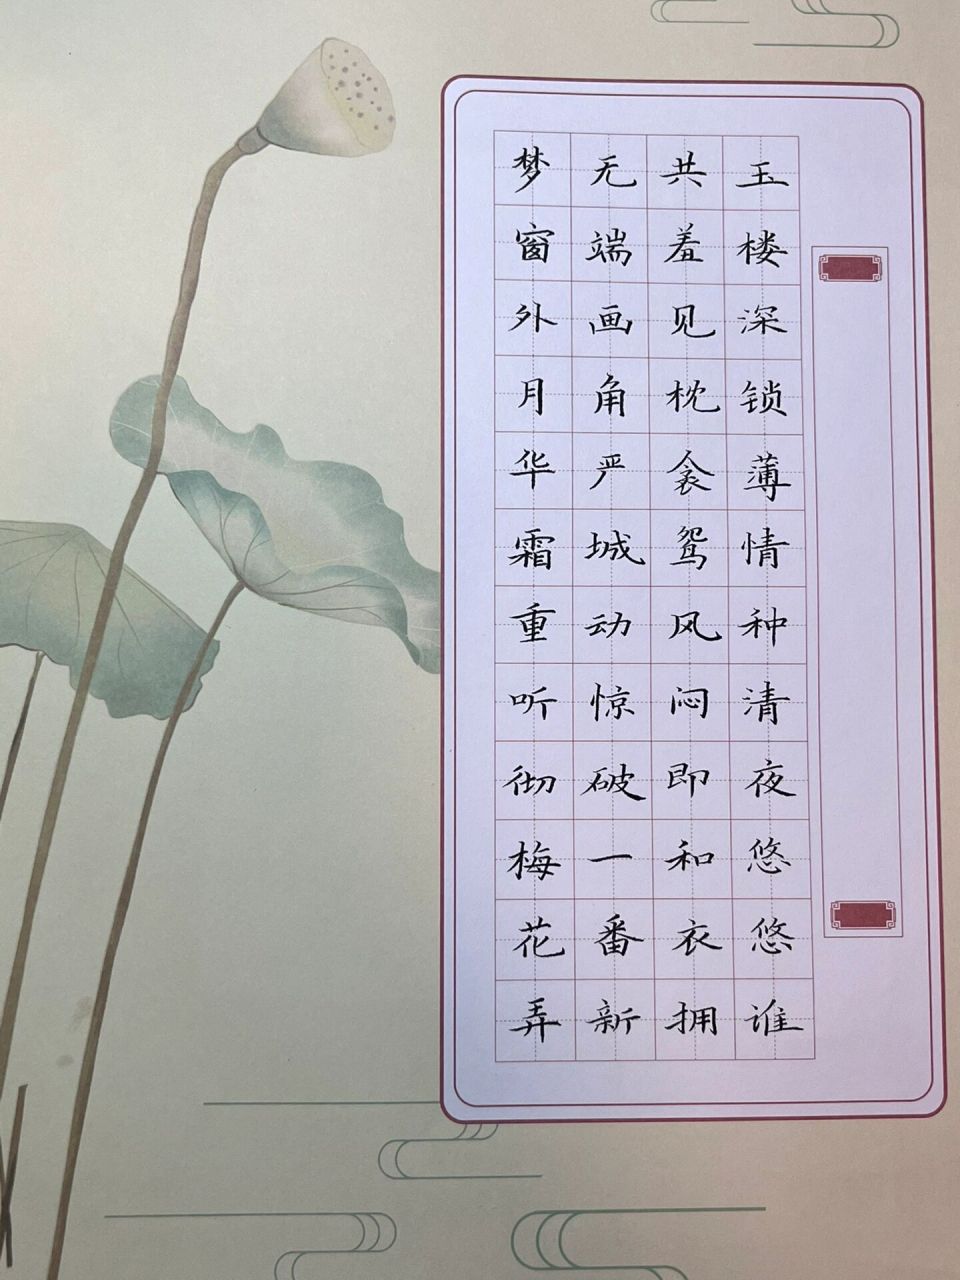 玉楼深锁薄情种清夜悠悠谁
共羞见枕衾鸳凤闷即和衣拥
无端画角严城动惊破一番新
梦窗外月华霜重听彻梅花弄